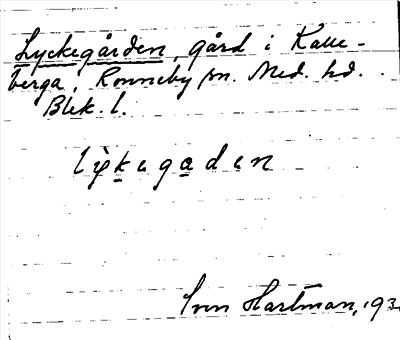 Lyckegården, gård i Kalle-
berga, Ronneby sn. Med. hd.
Blek. l.
Sven Hartman, 193